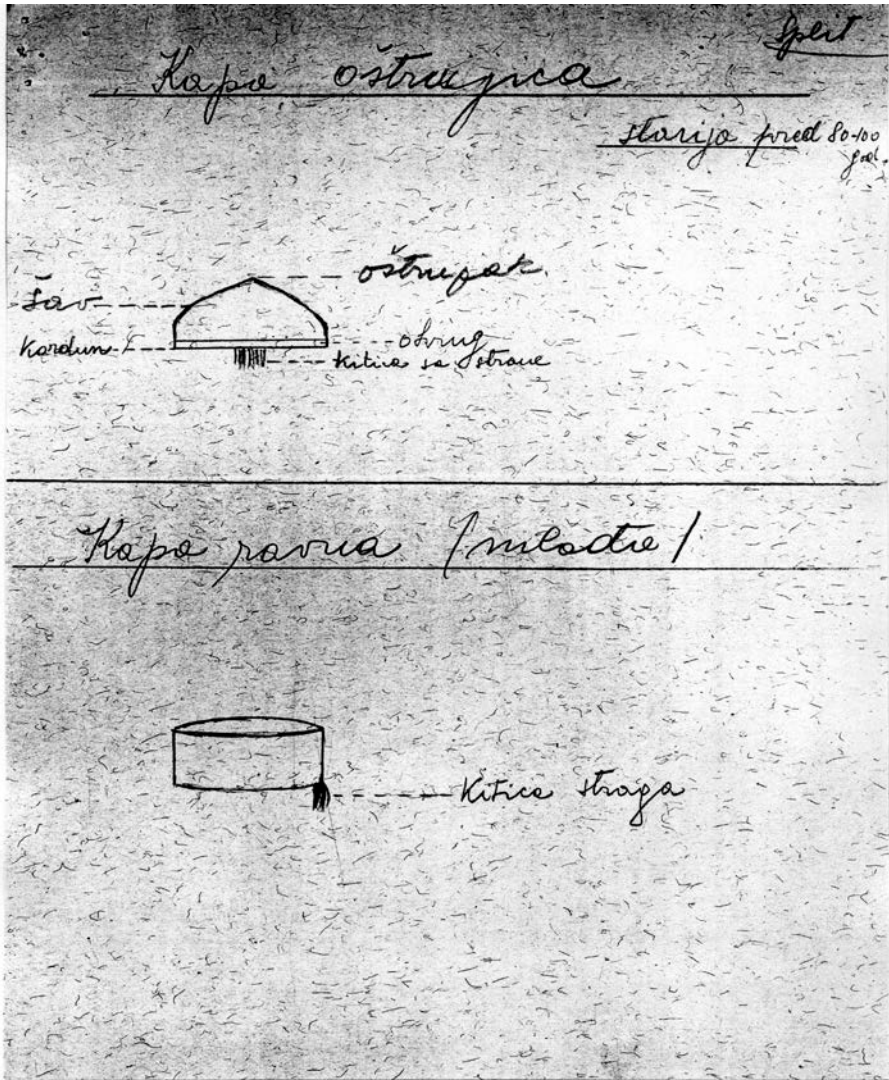 Split
Kapa oštrujica
starija pred 80-100
god.
oštrujak
Šav
Kordun
okrug
Kitica sa strane
Kapa ravna /mlađa/
Kitica straga